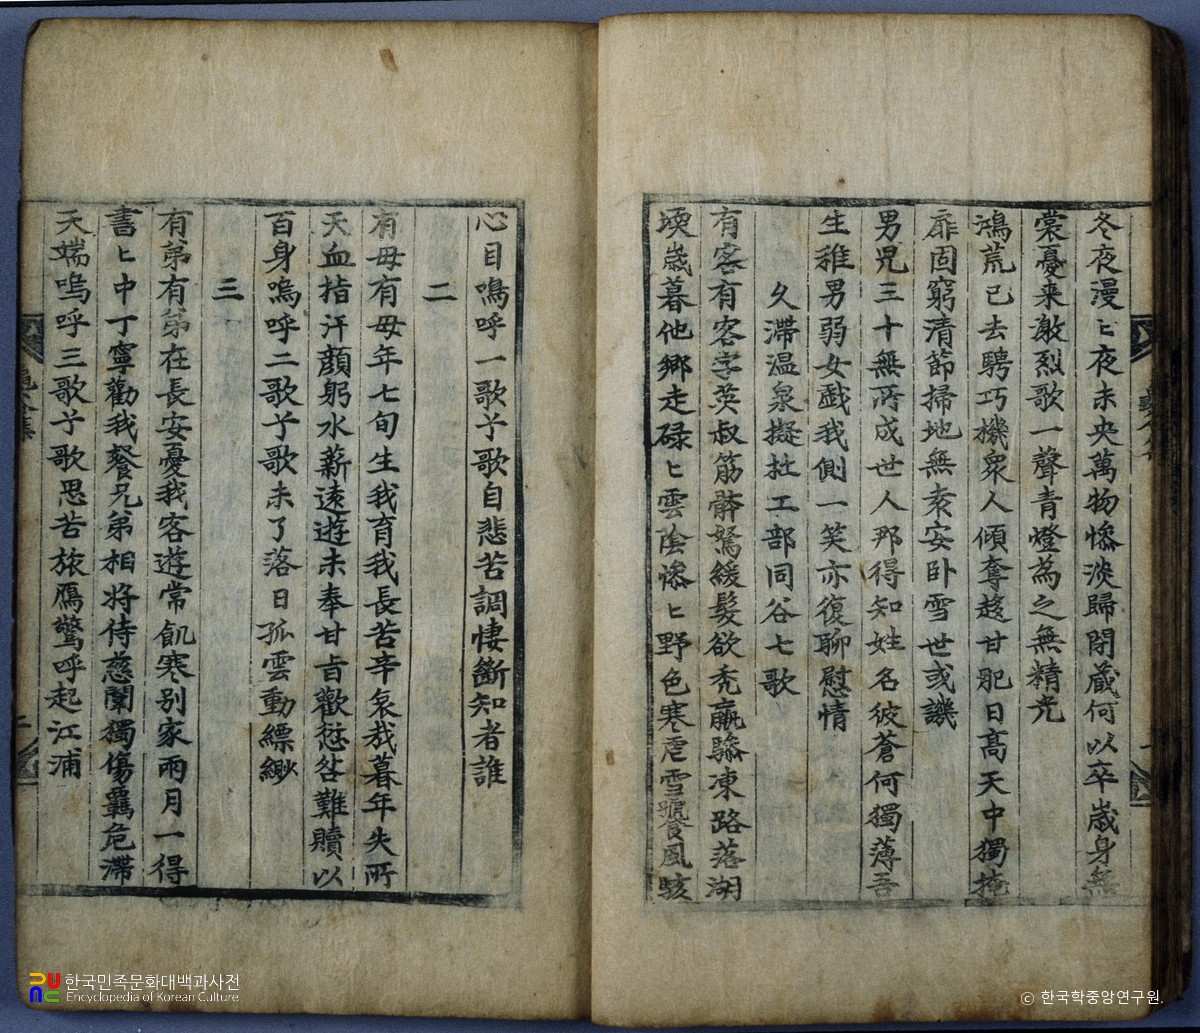 冬夜漫〻夜未央萬物慘淡歸閉藏何以卒歲身無
裳憂来激烈歌一聲青燈為之無精光
鴻荒已去騁巧機衆人傾奪趍甘肥日高天中獨掩
扉固窮清節掃地無袁安臥雪世或譏
男兒三十無所成世人那得知姓名彼蒼何獨薄吾
生稚男弱女戱我側一笑亦復聊慰情
久滯温泉擬杜工部同谷七歌
有客有客字英叔筋骸駑緩髮欲禿羸驂凍路落湖
堧歲暮他鄉走碌〻雲陰慘〻野色寒虐雪饕風駭
心目嗚呼一歌兮歌自悲苦調悽斷知者誰
二
有母有母年七旬生我育我長苦辛哀哉暮年失所
天血指汗顔躬水薪遠遊未奉甘旨歡愆咎難贖以
百身嗚呼二歌兮歌未了落日孤雲動縹緲
三
有弟有弟在長安憂我客遊常飢寒别家兩月一得
書〻中丁寧勸我餐兄弟相將侍慈闈獨傷羈危滯
天端嗚呼三歌兮歌思苦旅鴈驚呼起江浦
한국민족문화대백과사전
Encyclopedia of Korean Culture
ⓒ 한국학중앙연구원.